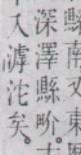 縣南又東
深澤縣畍
入滹沱矣